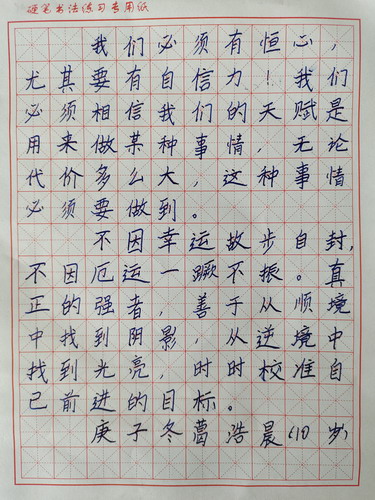 硬笔书法练习专用纸
我们必须有恒心，
尤其要有自信力！我们
必须相信我们的天赋是
用来做某种事情，无论
代价多么大，这种事情
必须要做到。
不因幸运故步自封，
不因厄运一蹶不振。真
正的强者，善于从顺境
中找到阴影，从逆境中
找到光亮，时时校准自
己前进的目标。
庚子冬葛浩晨（10岁）